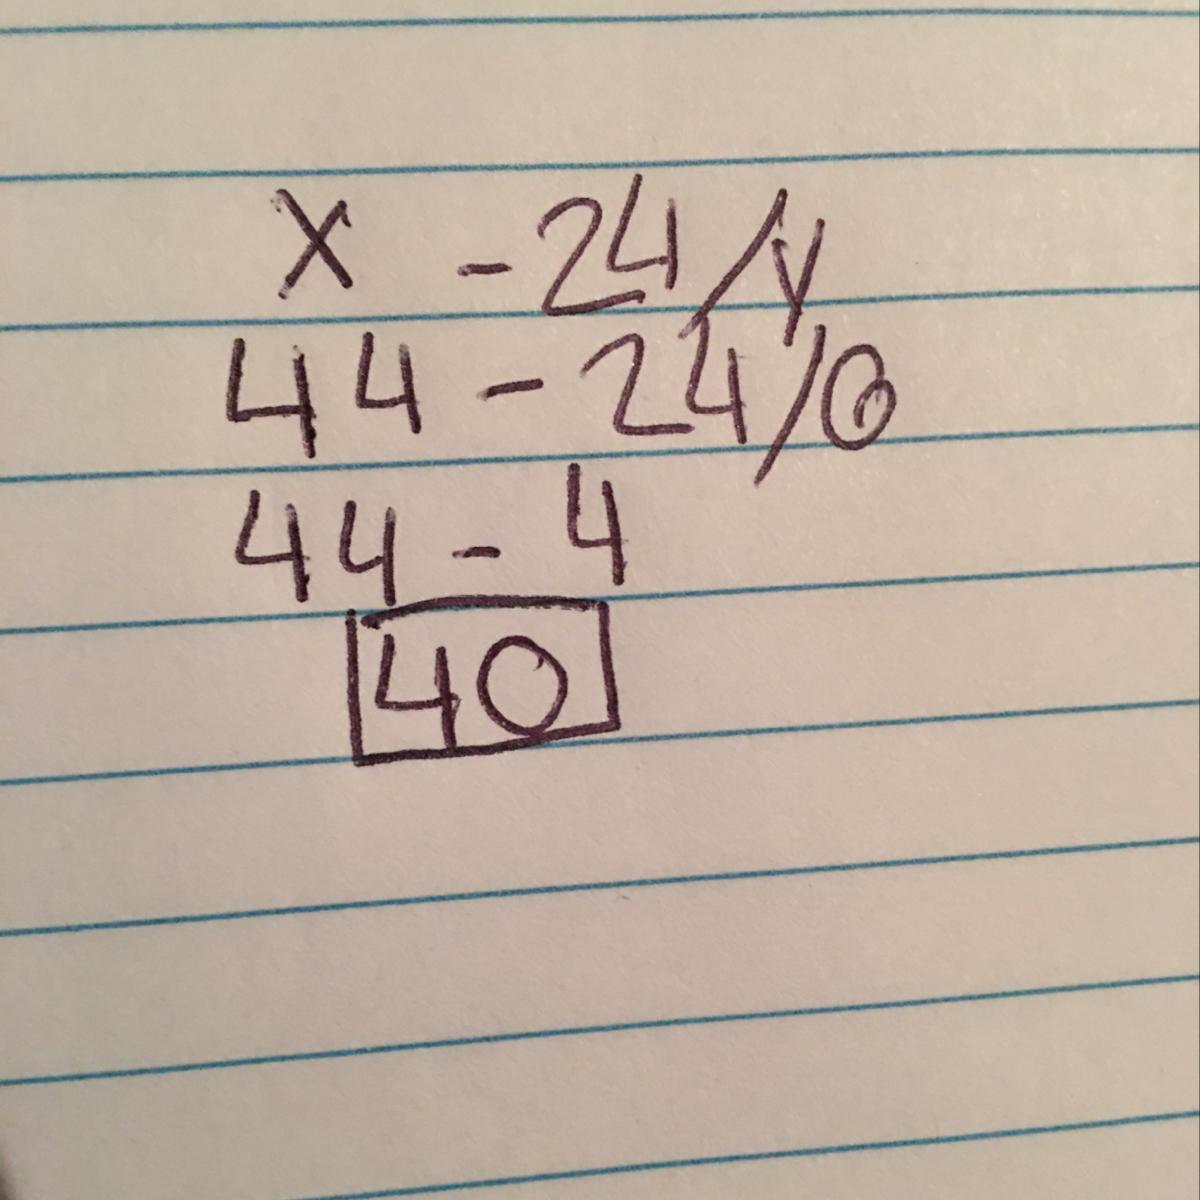 x - 24/y
44 - 24/6
44 - 4
40